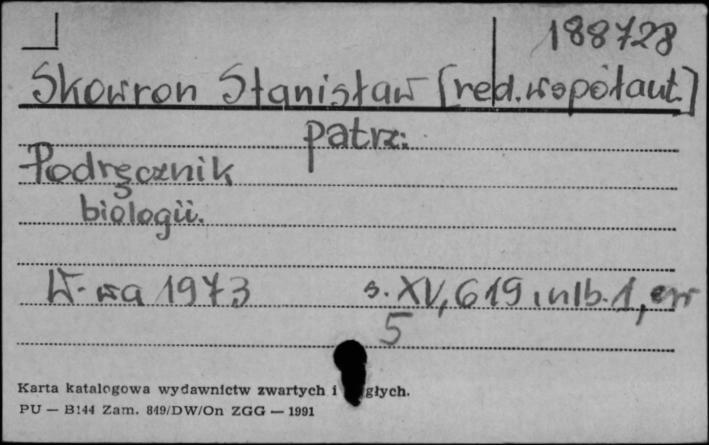 188728
Skowron Stanisław [red. współaut.]
patrz:
Podręcznik
biologii.
W-wa 1973 s. XV, 619, nlb. 1, err
5
Karta katalogowa wydawnictw zwartych i głych.
PU — B144 Zam. 849/DW/On ZGG — 1991